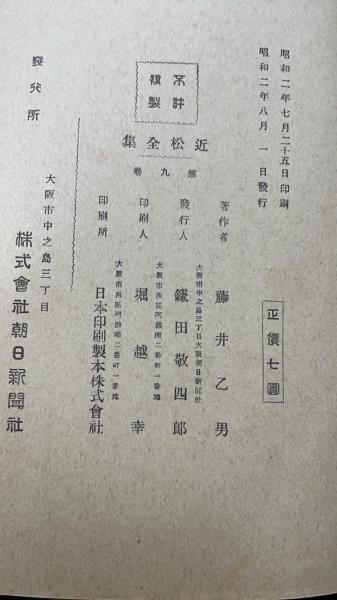 昭和二年七月二十五日印刷
昭和二年八月一日發行
正價七圓
不許複製
近松全集
第九卷
著作者 藤井乙男
大阪市中之島三丁目大阪朝日新聞社
發行人 鎌田敬四郎
大阪市西區阿波座二番町一番地
印刷人 堀越幸
大阪市西區阿波座二番町一番地
印刷所 日本印刷製本株式會社
發行所
大阪市中之島三丁目
株式會社朝日新聞社